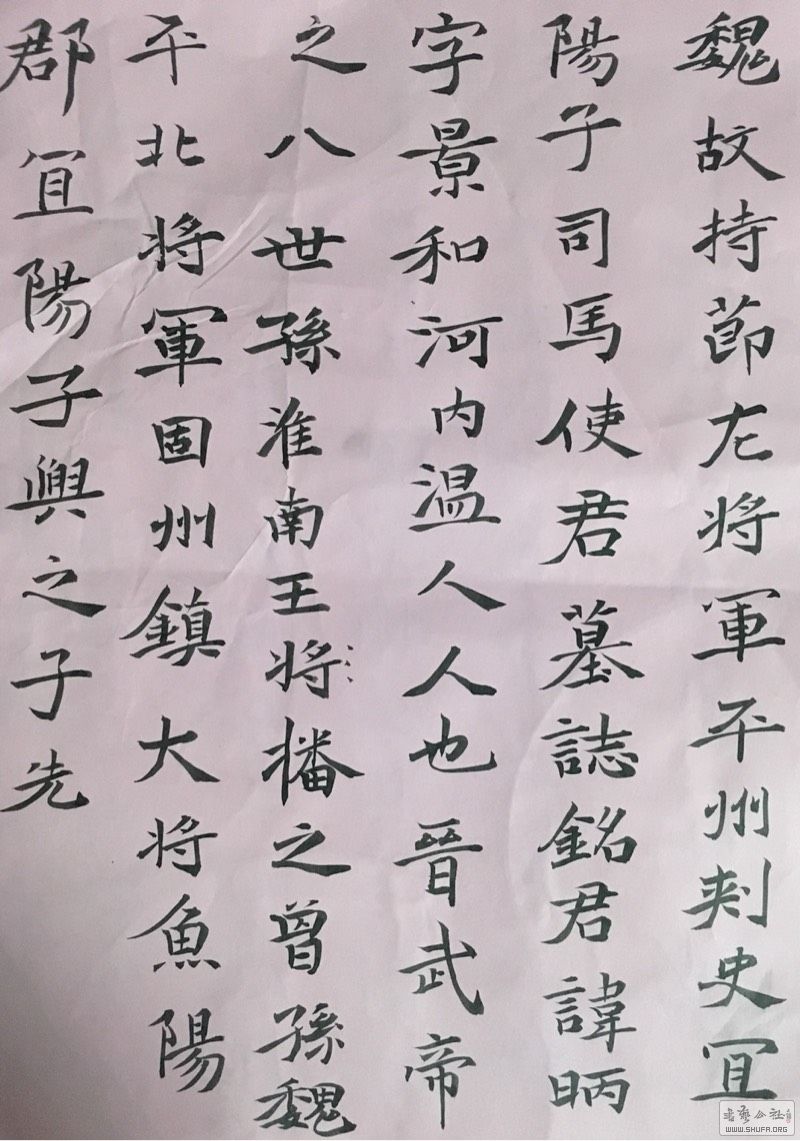 魏故持節左将軍平州刾史冝
陽子司馬使君墓誌銘君諱昞
字景和河内温人人也晉武帝
之八世孫淮南王将播之曾孫魏
平北将軍固州鎮大将魚陽
郡冝陽子興之子先
书艺公社
WWW.SHUFA.ORG